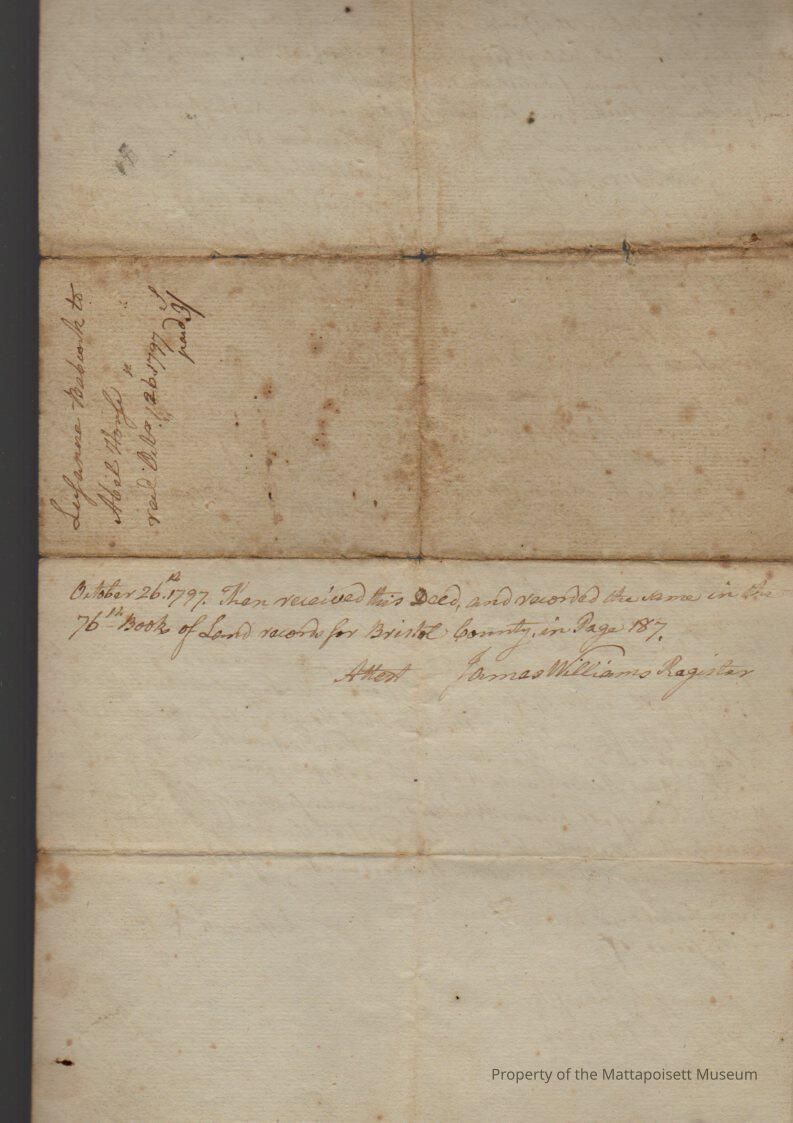 Susanna Babcock to
Abel House
recd Octor 26th 1797
paid
October 26th 1797. Then received this Deed, and recorded the same in the
76th Book of Land records for Bristol County, in Page 187.
Attest James Williams Register
Property of the Mattapoisett Museum